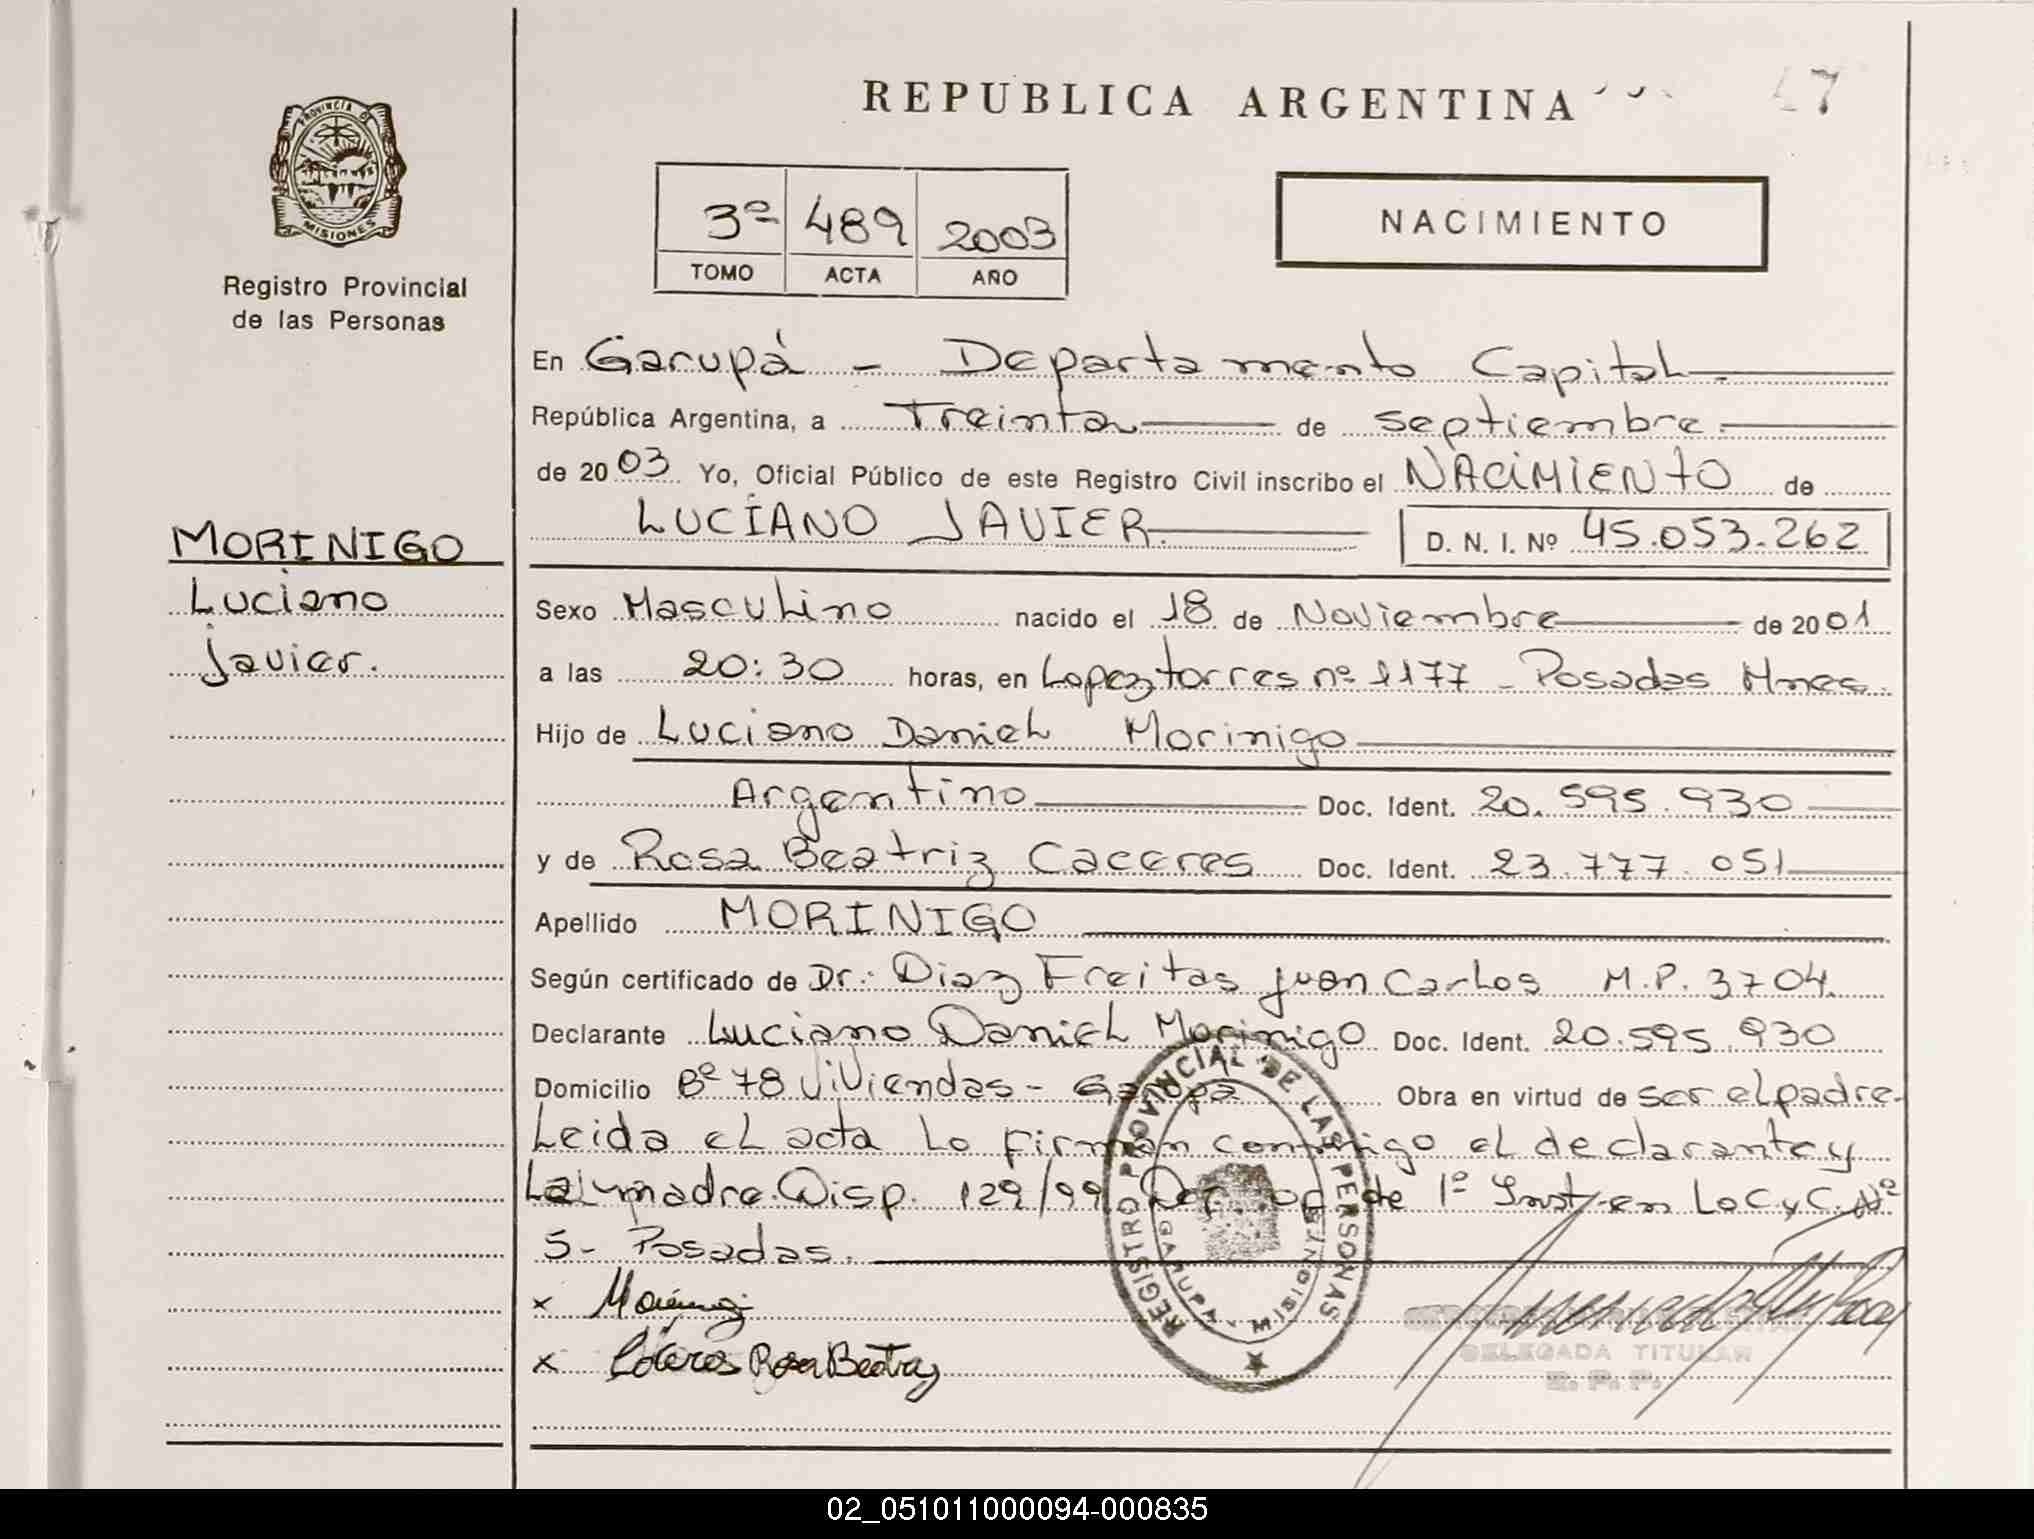 REPUBLICA ARGENTINA
47
PROVINCIA DE
MISIONES
Registro Provincial
de las Personas
3º 489 2003
TOMO ACTA AÑO
NACIMIENTO
En Garupá - Departamento Capital.
República Argentina, a Treinta de septiembre.
de 2003 Yo, Oficial Público de este Registro Civil inscribo el NACIMIENTO de
LUCIANO JAVIER. D. N. I. Nº 45.053.262
MORINIGO
Luciano
Javier.
Sexo Masculino nacido el 18 de Noviembre de 2001
a las 20:30 horas, en Lopez torres nº 1177 - Posadas Mnes.
Hijo de Luciano Daniel Morinigo
Argentino Doc. Ident. 20.595.930
y de Rosa Beatriz Caceres Doc. Ident. 23.777.051
Apellido MORINIGO
Según certificado de Dr.: Diaz Freitas Juan Carlos M.P. 3704.
Declarante Luciano Daniel Morinigo Doc. Ident. 20.595.930
Domicilio Bº 78 Viviendas - Garupá Obra en virtud de ser el padre-
Leida el acta lo firman conmigo el declarante y
La madre. Disp. 129/99 de 1º Inst. en Lo C y C. Nº
5- Posadas.
x Morinigo
x Caceres Rosa Beatriz
REGISTRO PROVINCIAL DE LAS PERSONAS
GARUPA - MISIONES
DELEGADA TITULAR
R. P. P.
02_051011000094-000835